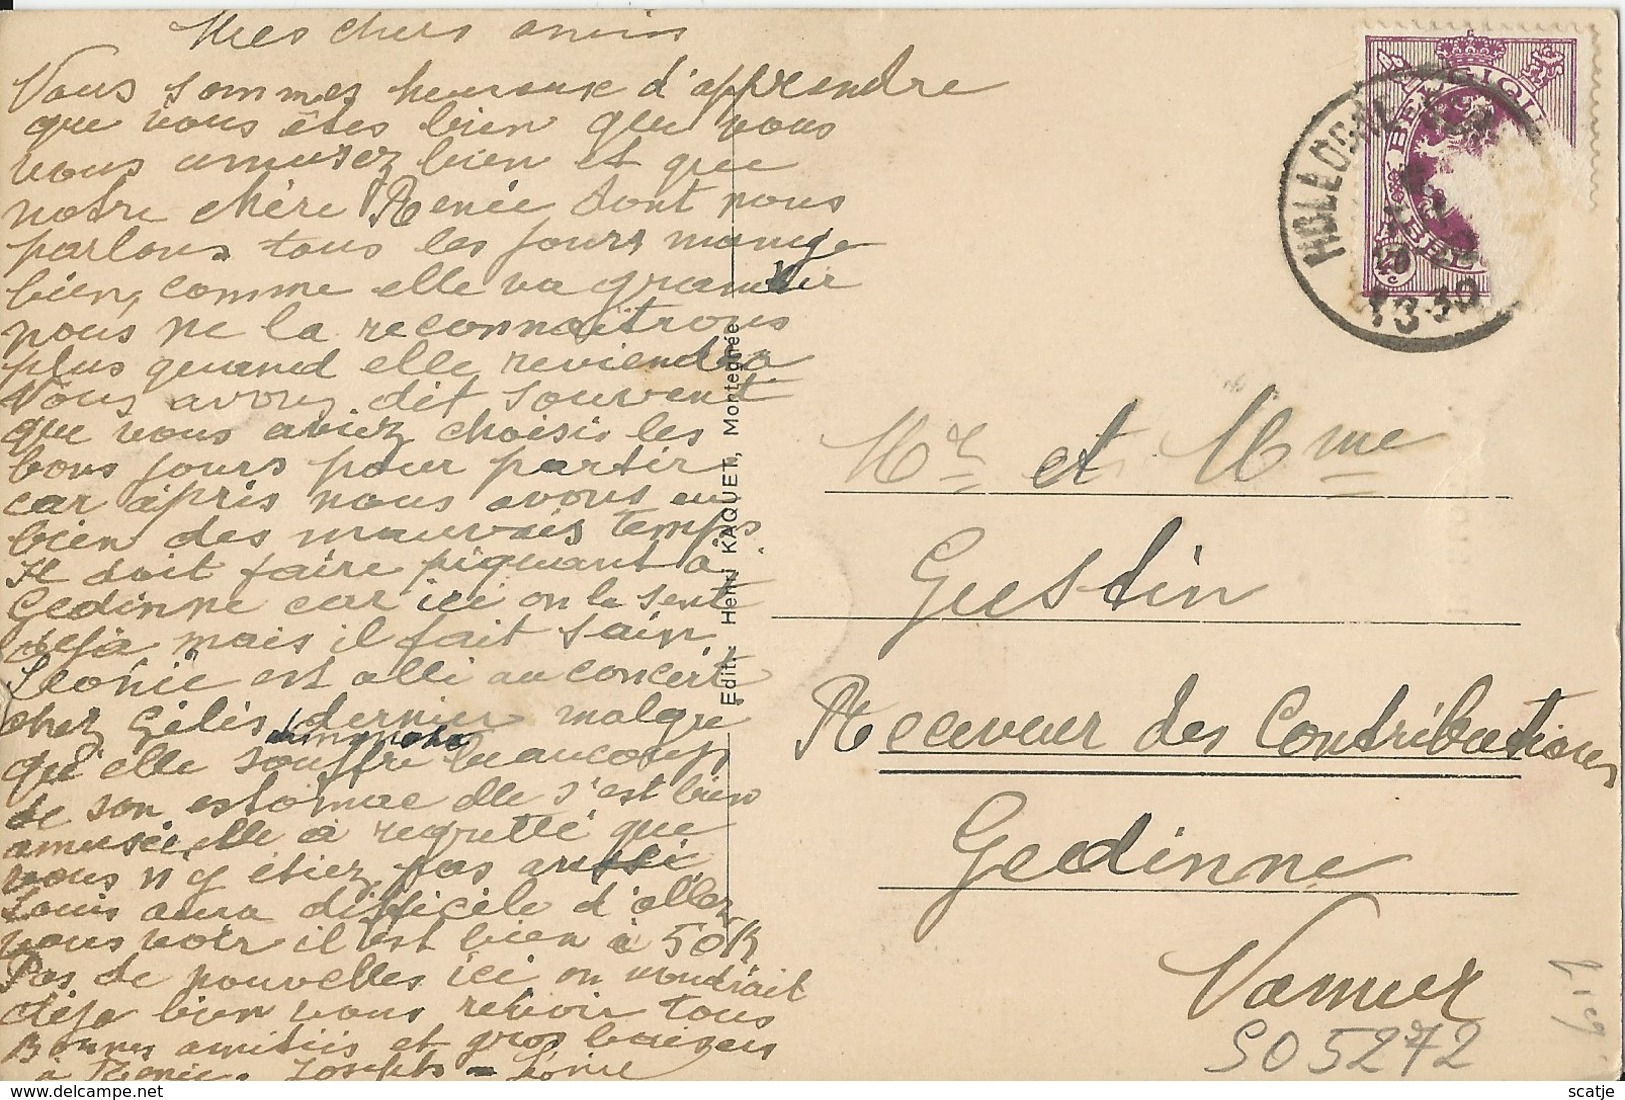 Mes chers amis
Nous sommes heureux d'apprendre
que vous êtes bien que vous
vous amusez bien et que
notre chère Renée dont nous
parlons tous les jours mange
bien, comme elle va grandir
nous ne la reconnaitrons
plus quand elle reviendra
Nous avons dit souvent
que vous aviez choisis les
bons jours pour partir
car après nous avons eu
bien des mauvais temps
Il doit faire piquant à
Gedinne car ici on le sent
déjà mais il fait sain
Léonie est allé au concert
chez Gilis dernier malgre
dimanche
qu'elle souffre beaucoup
de son estomac elle s'est bien
amusée, elle a regretté que
vous n'y étiez pas aussi
Louis aura difficile d'aller
vous voir il est bien à 50K
Pas de nouvelles ici on voudrait
déja bien vous revoir tous
Bonnes amitiés et gros baisers
à Renée. Joseph - Léonie
Edit. Henri KAQUET, Montegnée
BELGIQUE
BELGIË
20 c
HOLLOGNE
1930
Mr et Mme
Gustin
Receveur des Contributions
Gedinne
Namur
SO5272
scatje